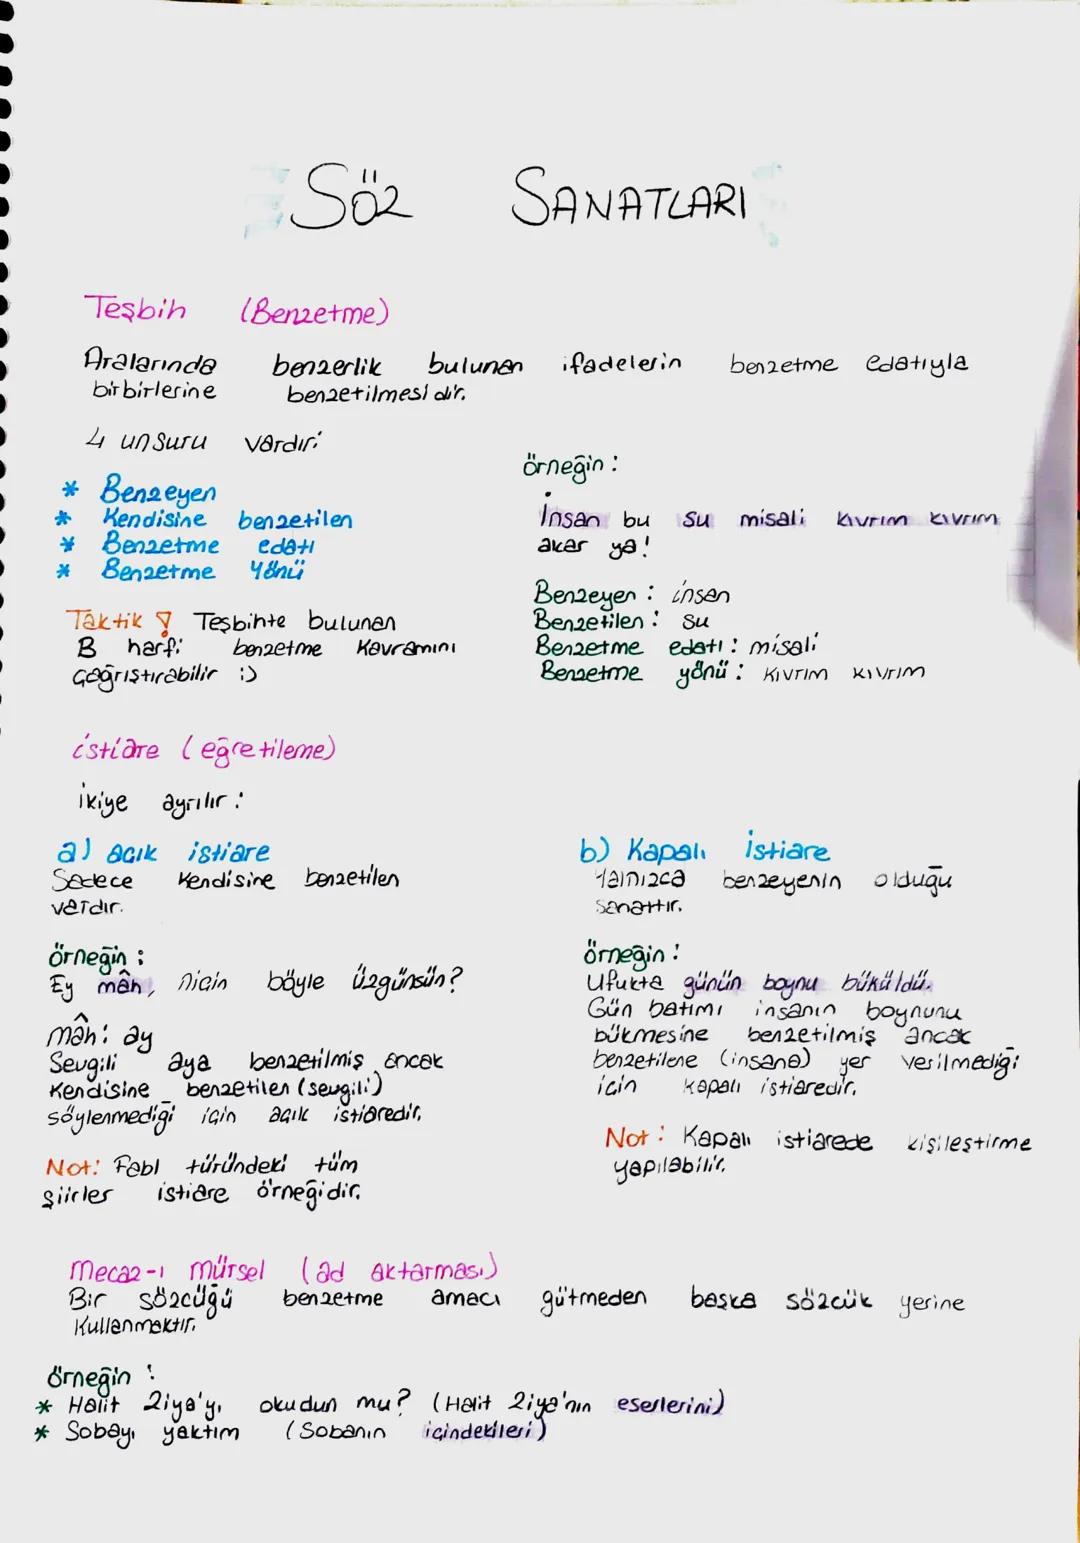 Söz SANATLARI
Teşbih (Benzetme)
Aralarında benzerlik bulunan ifadelerin benzetme edatıyla
birbirlerine benzetilmesidir.
4 unsuru vardır:
* Benzeyen
* Kendisine benzetilen
* Benzetme edatı
* Benzetme Yönü
Taktik ! Teşbihte bulunan
B harfi benzetme kavramını
çağrıştırabilir :)
örneğin :
İnsan bu su misali kıvrım kıvrım
akar ya!
Benzeyen : insan
Benzetilen : su
Benzetme edatı : misali
Benzetme yönü : kıvrım kıvrım
istiare (eğretileme)
ikiye ayrılır :
a) açık istiare
Sadece kendisine benzetilen
vardır.
örneğin :
Ey mâh, niçin böyle üzgünsün?
mâh: ay
Sevgili aya benzetilmiş ancak
kendisine benzetilen (sevgili)
söylenmediği için açık istiaredir.
Not: Fabl türündeki tüm
şiirler istiare örneğidir.
b) Kapalı istiare
Yalnızca benzeyenin olduğu
sanattır.
örneğin :
Ufukta günün boynu büküldü.
Gün batımı insanın boynunu
bükmesine benzetilmiş ancak
benzetilene (insana) yer verilmediği
için kapalı istiaredir.
Not : Kapalı istiarede kişileştirme
yapılabilir.
mecaz-ı mürsel (ad aktarması)
Bir sözcüğü benzetme amacı gütmeden başka sözcük yerine
kullanmaktır.
örneğin :
* Halit Ziya'yı okudun mu? (Halit Ziya'nın eserlerini)
* Sobayı yaktım (Sobanın içindekileri)